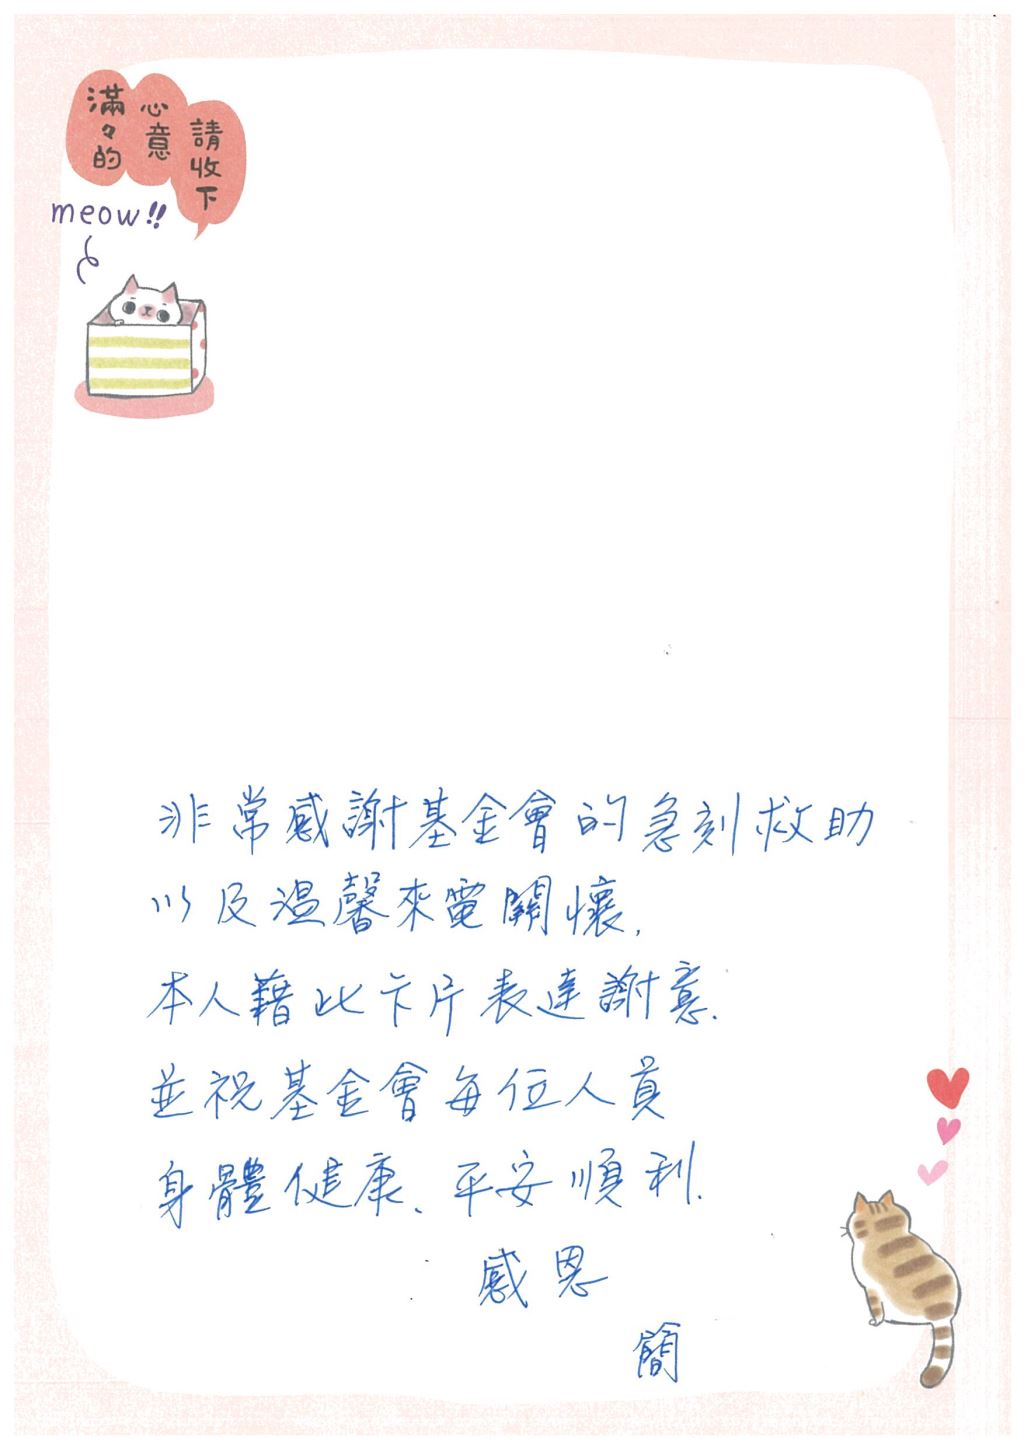 滿々的
心意
請收下
meow!!
非常感謝基金會的急刻救助
以及溫馨來電關懷,
本人藉此卡片表達謝意.
並祝基金會每位人員
身體健康、平安順利.
感恩
簡